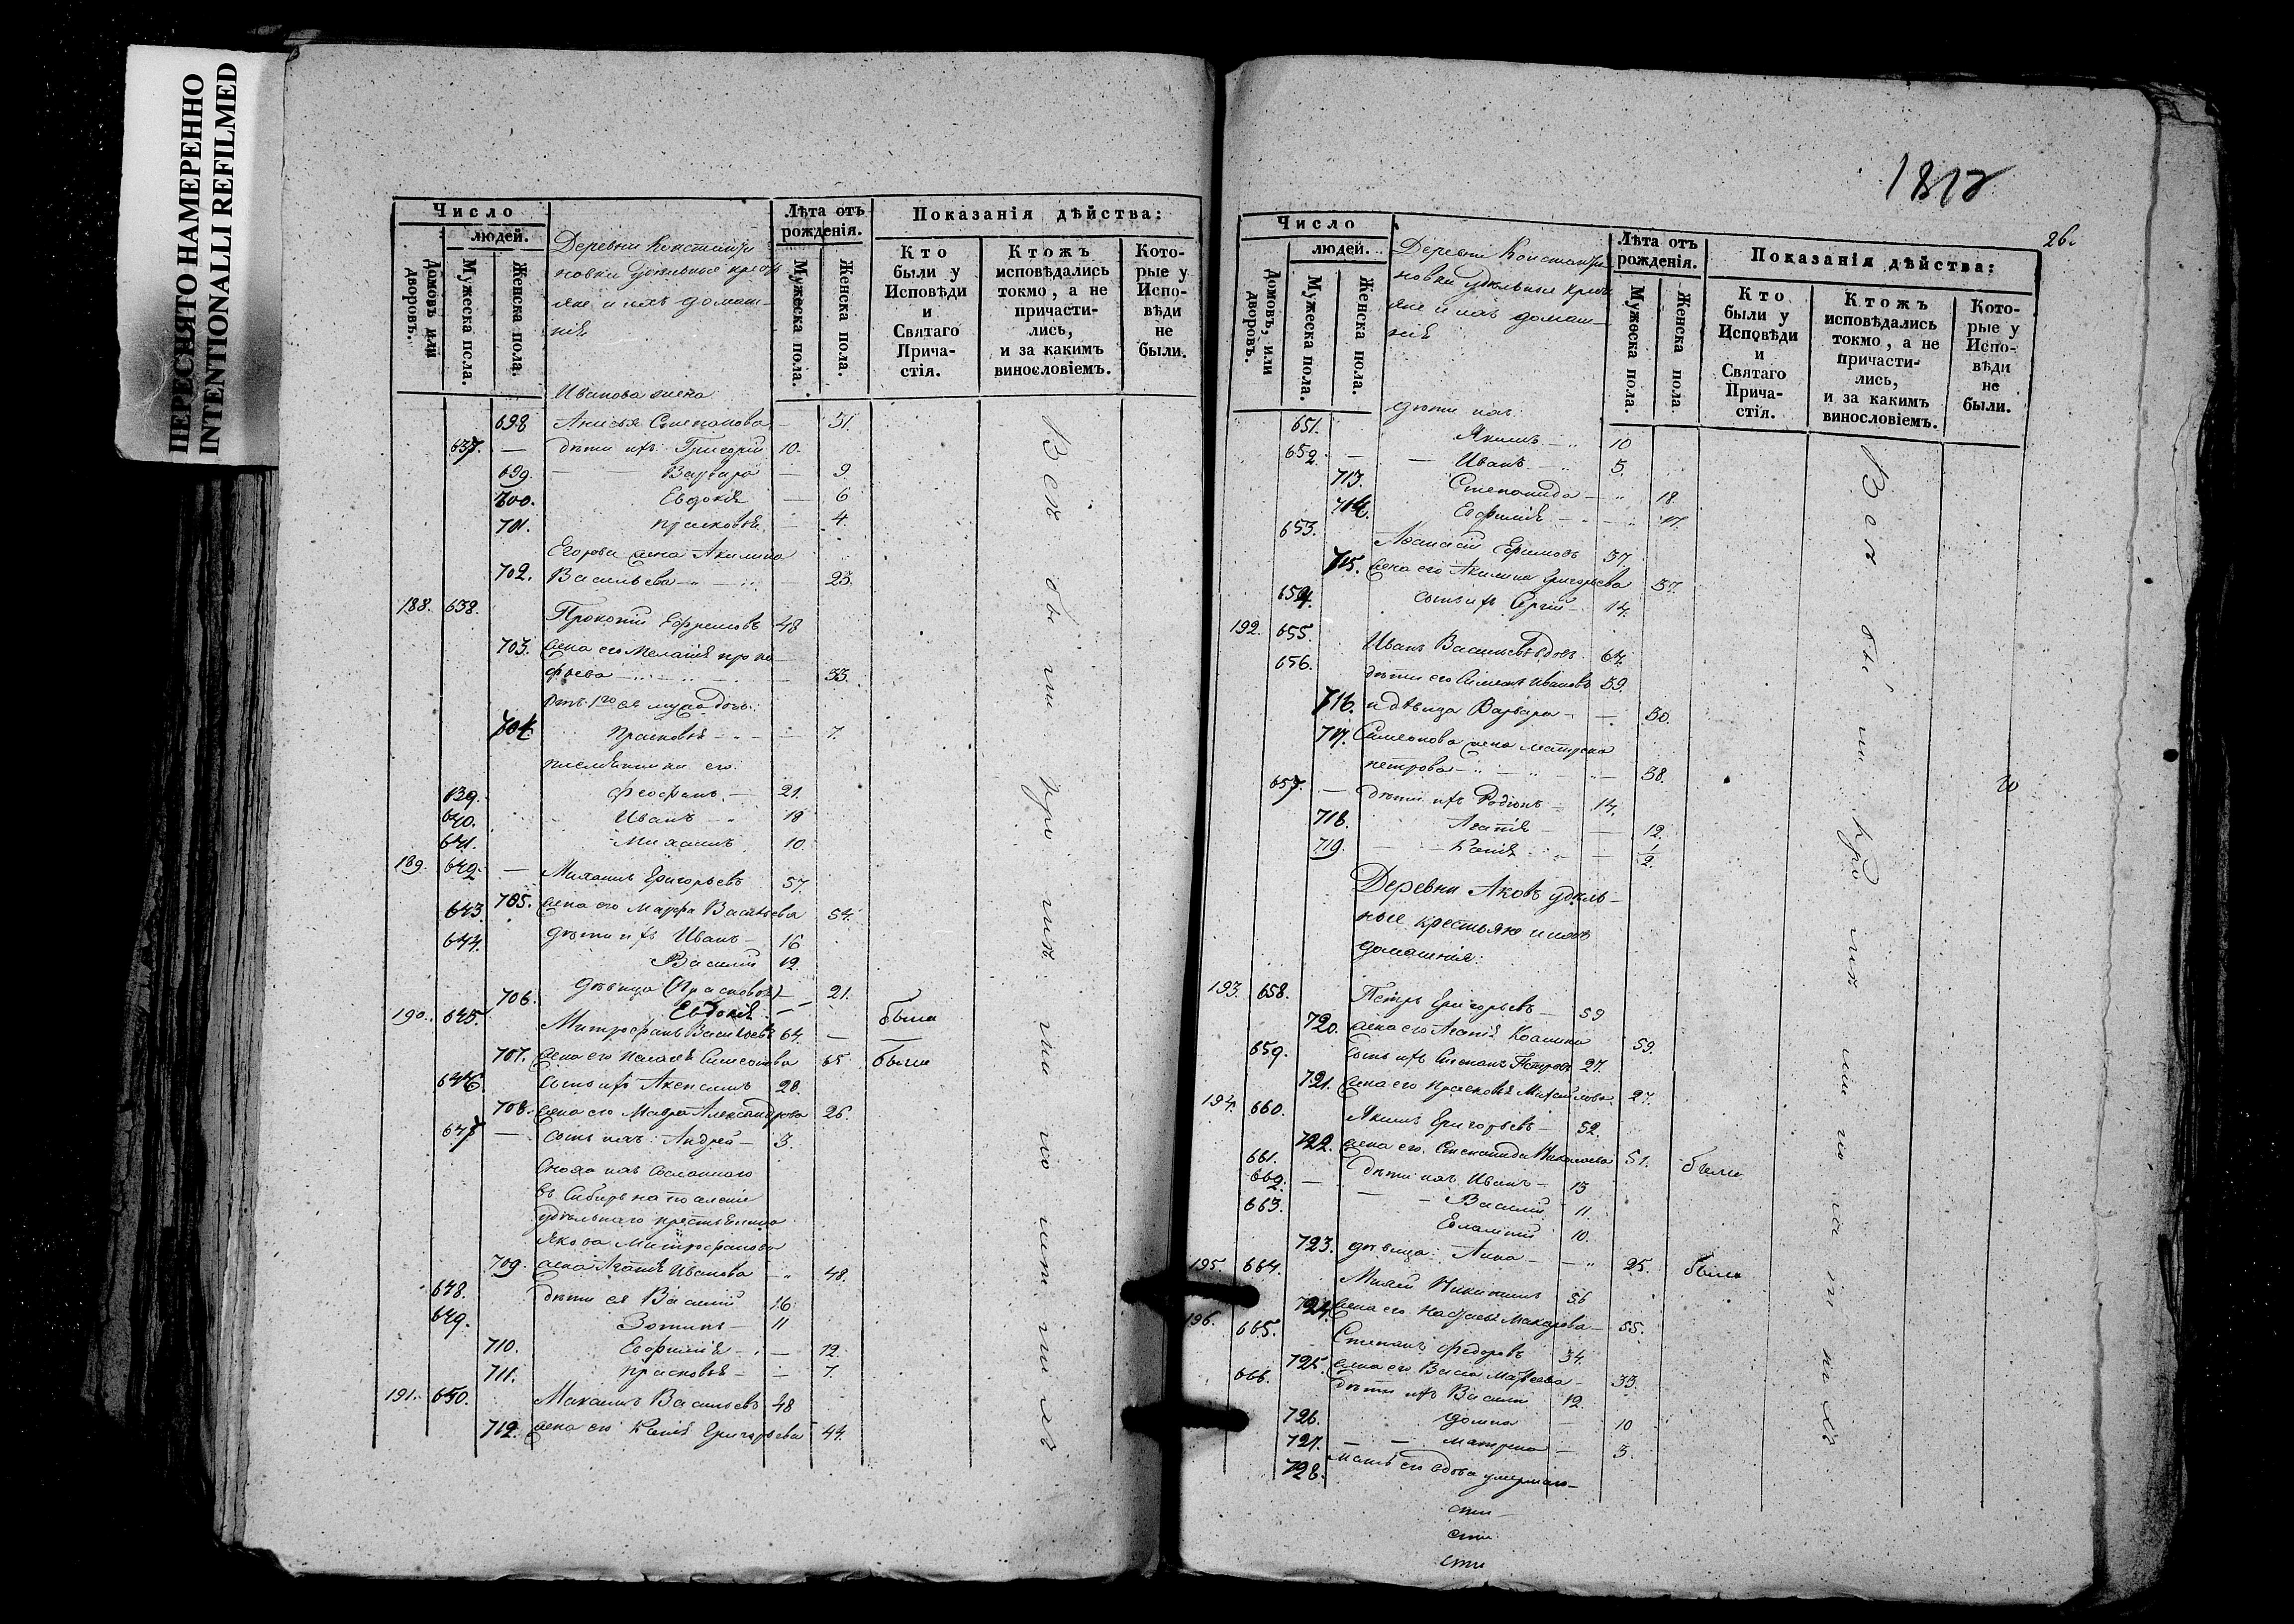 ПЕРЕСНЯТО НАМЕРЕННО
INTENTIONALLI REFILMED
Число
людей.
Домовъ или дворовъ.
Мужеска пола.
Женска пола.
Деревни Константи
новки удѣльные крестья
яне и ихъ домаш-
нія
Лѣта отъ рожденія.
Мужеска пола.
Женска пола.
Показанія дѣйства:
Кто были у Исповѣди и Святаго Причастія.
Ктожъ исповѣдались токмо, а не причастились, и за какимъ винословіемъ.
Которые у Исповѣди не были.
Иванова жена
698 Анисья Степанова — 51.
637. — дѣти ихъ Григорій 10.
699. Варвара — 9.
700. Евдокія — 6
701. Прасковья — 4.
Егорова жена Акилина
702. Васильева — 23.
188. 638. Прокопій Ефремовъ 48
703. жена его Меланія проко-
фьева — 33.
704 Прасковья — 7.
племянники его:
639. Феофанъ — 21.
640. Иванъ — 18
641. Михаилъ 10.
189. 642. — Михаилъ Григорьевъ 57.
705. жена его Марфа Васильева 54.
643. дѣти ихъ Иванъ — 16
644. Василій 12.
706. дѣвица (Прасковья) — 21.
Евдокія —
190. 645. Митрофанъ Васильевъ 64. — были
707. жена его Пелагія Симеонова 65 были
646 сынъ ихъ Акепсимъ 28.
708. жена его Мавра Александрова 26.
647 — сынъ ихъ: Андрей — 3.
Сноха ихъ Сосланнаго
въ Сибирь на поселеніе
удѣльнаго крестьянина
Якова Митрофанова
709. жена Агафія Иванова — 48.
648. дѣти ея Василій 16
649. Зотикъ — 11
710. Евфимія — 12.
711. Прасковья — 7.
191. 650. Максимъ Васильевъ 48
712. жена его Ксенія Григорьева 44.
1812
26.
Число
людей.
Домовъ, или дворовъ.
Мужеска пола.
Женска пола.
Деревни Константи
новки удѣльные крестья
яне и ихъ домаш-
нія
Лѣта отъ рожденія.
Мужеска пола.
Женска пола
Показанія дѣйства:
Кто были у Исповѣди и Святаго Причастія.
Ктожъ исповѣдались токмо, а не причастились, и за какимъ винословіемъ.
Которые у Исповѣди не были.
дѣти ихъ:
651. Якимъ — 10
652. — Иванъ — 5.
713. Степанида — 18.
714. Евфимія — 17.
653. Афанасій Ефимовъ 37.
715. жена его Акилина Григорьева 37.
654. сынъ ихъ Сергій — 14.
192. 655. Иванъ Васильевъ вдовъ. 64.
656. дѣти его Симеонъ Ивановъ 39.
716. и дѣвица Варвара — 30.
717. Симеонова жена Матрена
петрова — 38.
657. — дѣти ихъ Родіонъ — 14.
718. Агафія — 12.
719. — Ксенія — 1/2.
Деревни Аковъ удѣль-
ные крестьяне и ихъ
домашнія:
193. 658. Петръ Григорьевъ — 59
720. жена его Агафія Козьмина 59.
659. сынъ ихъ Степанъ Петровъ 27.
721. жена его Прасковья Михайлова 27.
194. 660. Якимъ Григорьевъ — 52.
722. жена его Степанида Николаева 51. были
661. дѣти ихъ Иванъ — 15
662. — Василій 11.
663. Евлампій 10.
723. дѣвица: Анна — 25. были
195. 664. Михей Никитинъ 56
724. жена его Настасья Макарова — 55.
196. 665. Степанъ Федоровъ 34.
725 жена его Васса Матвеева — 33.
666. дѣти ихъ Василій 12.
726. Домна — 10
727. — Матрена — 3.
728. мать его вдова умершаго —